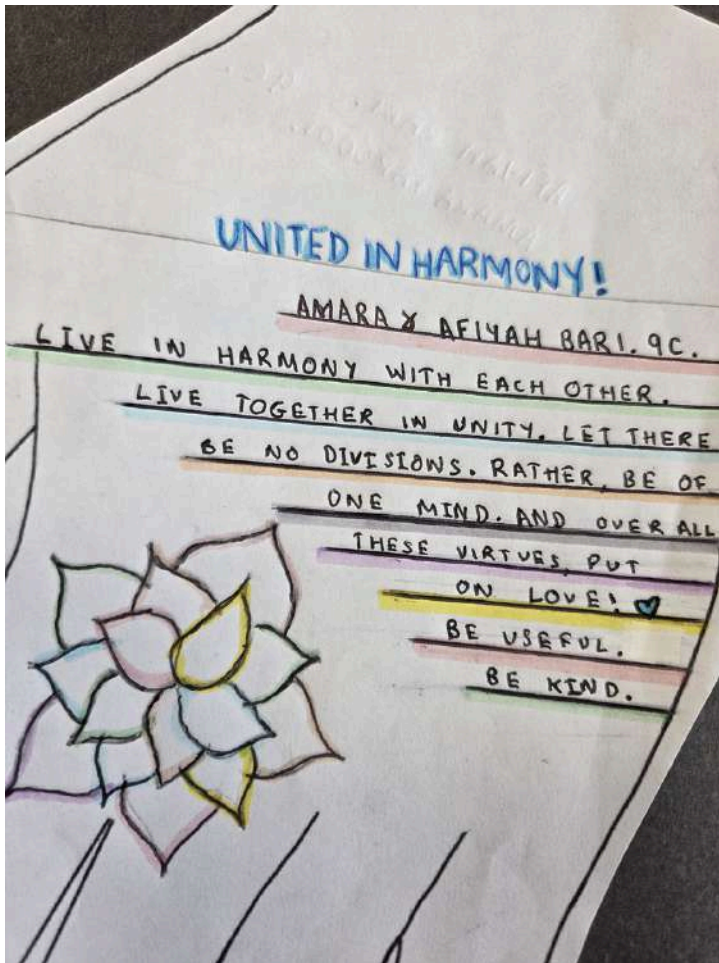 UNITED IN HARMONY!
AMARA & AFIYAH BARI. 9C.
LIVE IN HARMONY WITH EACH OTHER.
LIVE TOGETHER IN UNITY. LET THERE
BE NO DIVISIONS. RATHER, BE OF
ONE MIND. AND OVER ALL
THESE VIRTUES, PUT
ON LOVE!
BE USEFUL.
BE KIND.